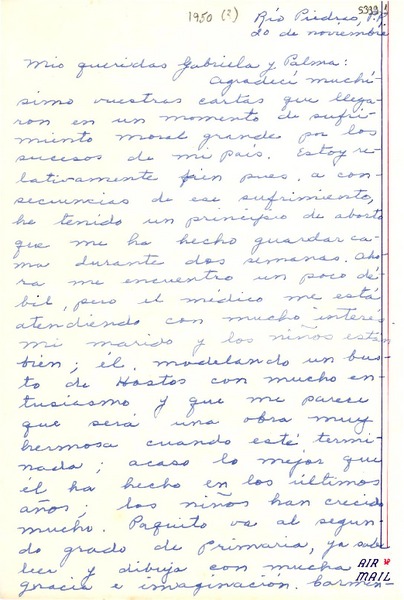 1950 (?)
5339
Río Piedras, P.R.
20 de noviembre
Mis queridas Gabriela y Palma:
Agradecí muchí-
simo vuestras cartas que llega-
ron en un momento de sufri-
miento moral grande por los
sucesos de mi país. Estoy re-
lativamente bien pues, a con-
secuencias de ese sufrimiento,
he tenido un principio de aborto
que me ha hecho guardar ca-
ma durante dos semanas. Aho-
ra me encuentro un poco dé-
bil, pero el médico me está
atendiendo con mucho interés
mi marido y los niños están
bien; él, modelando un bus-
to de Hostos con mucho en-
tusiasmo y que me parece
que será una obra muy
hermosa cuando esté termi-
nada; acaso lo mejor que
él ha hecho en los últimos
años; los niños han crecido
mucho. Paquito va al segun-
do grado de primaria, ya sabe
leer y dibuja con mucha
gracia e imaginación. Carmen-
AIR
MAIL